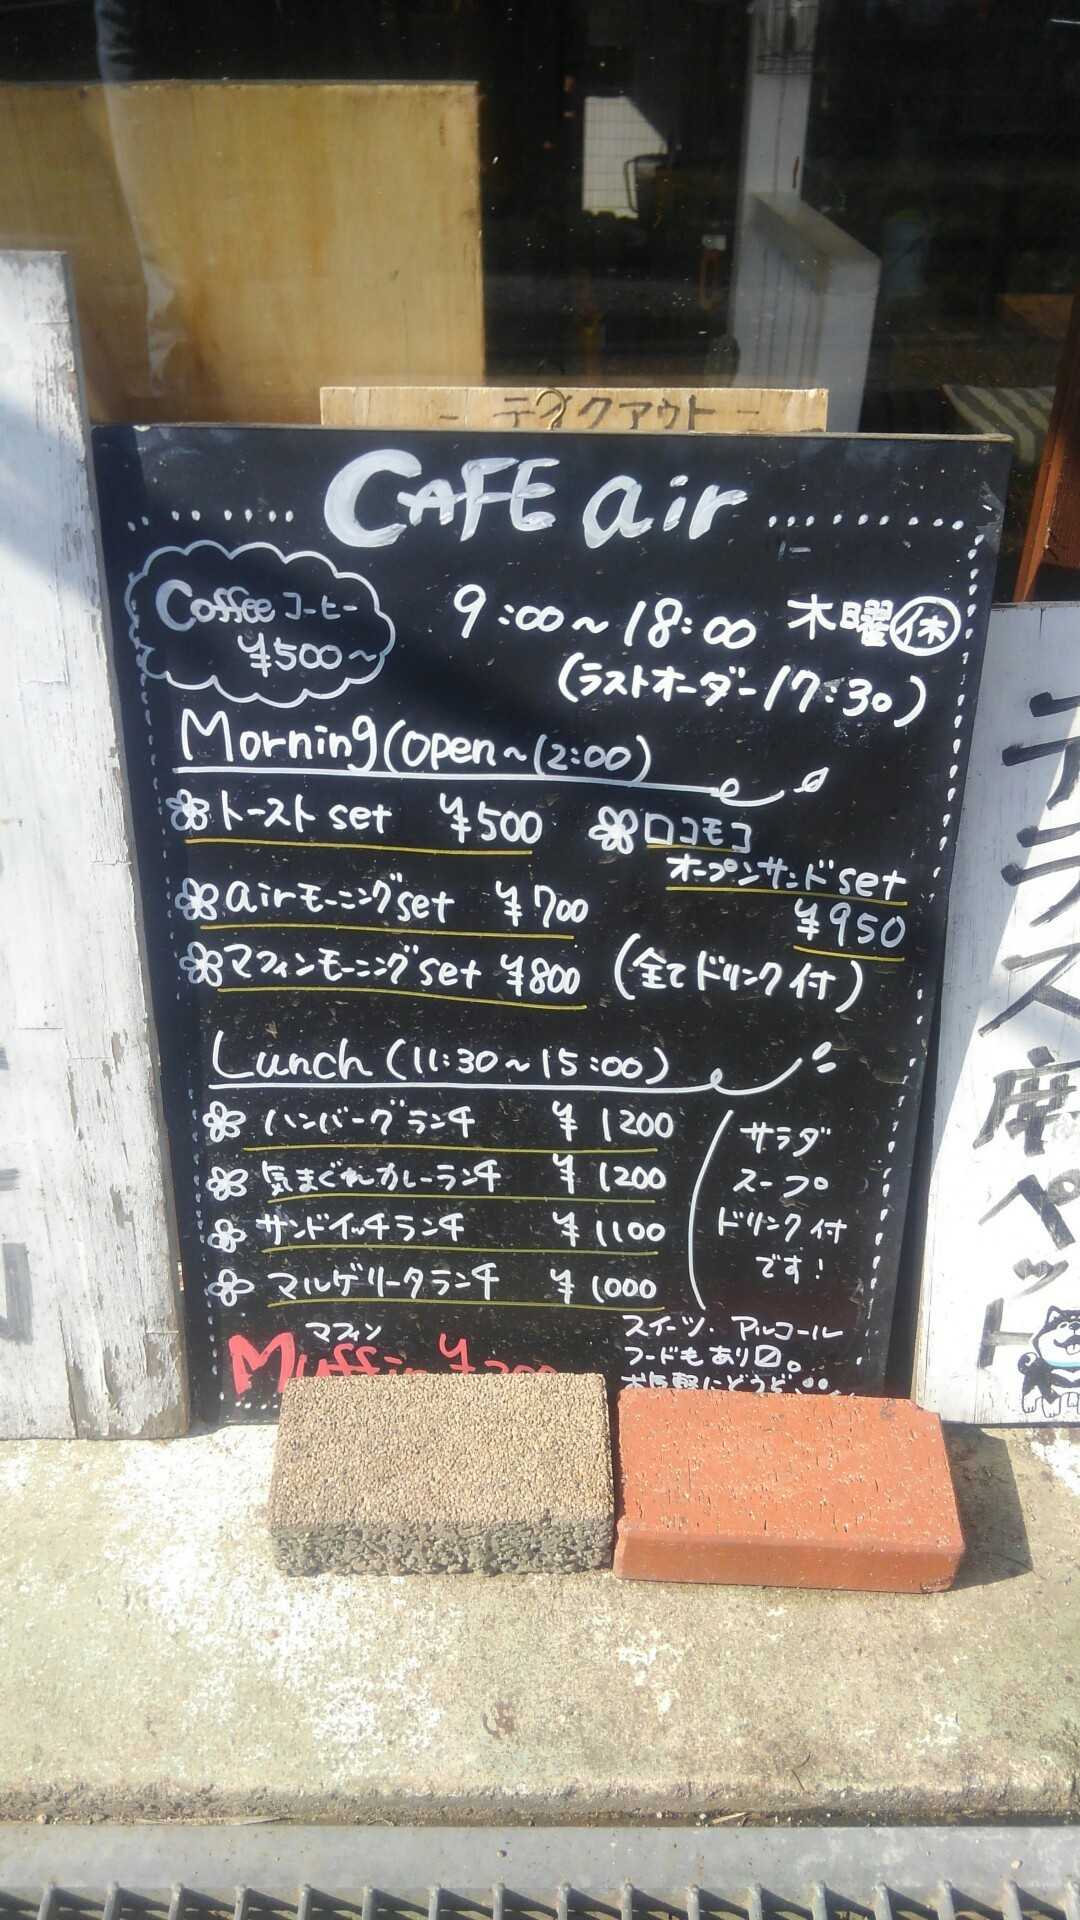 - テイクアウト -
CAFE air
Coffee コーヒー
¥500~
9:00~18:00 木曜㊡
(ラストオーダー17:30)
Morning(open~12:00)
トーストset ¥500
airモーニングset ¥700
マフィンモーニングset ¥800
ロコモコ
オープンサンドset
¥950
(全てドリンク付)
Lunch(11:30~15:00)
ハンバーグランチ ¥1200
気まぐれカレーランチ ¥1200
サンドイッチランチ ¥1100
マルゲリータランチ ¥1000
サラダ
スープ
ドリンク付
です!
マフィン
Muffin
スイーツ、アルコール
フードもあり〼。
お気軽にどうぞ
テラス席ペット